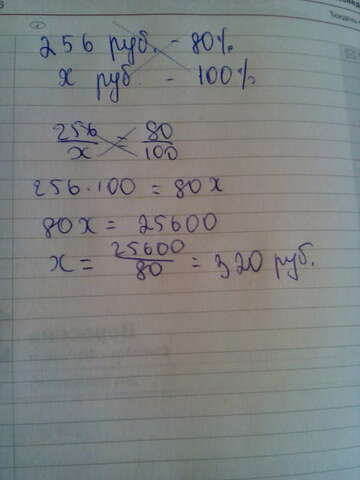 256 руб. - 80%
x руб. - 100%
256/x = 80/100
256·100 = 80x
80x = 25600
x = 25600/80 = 320 руб.